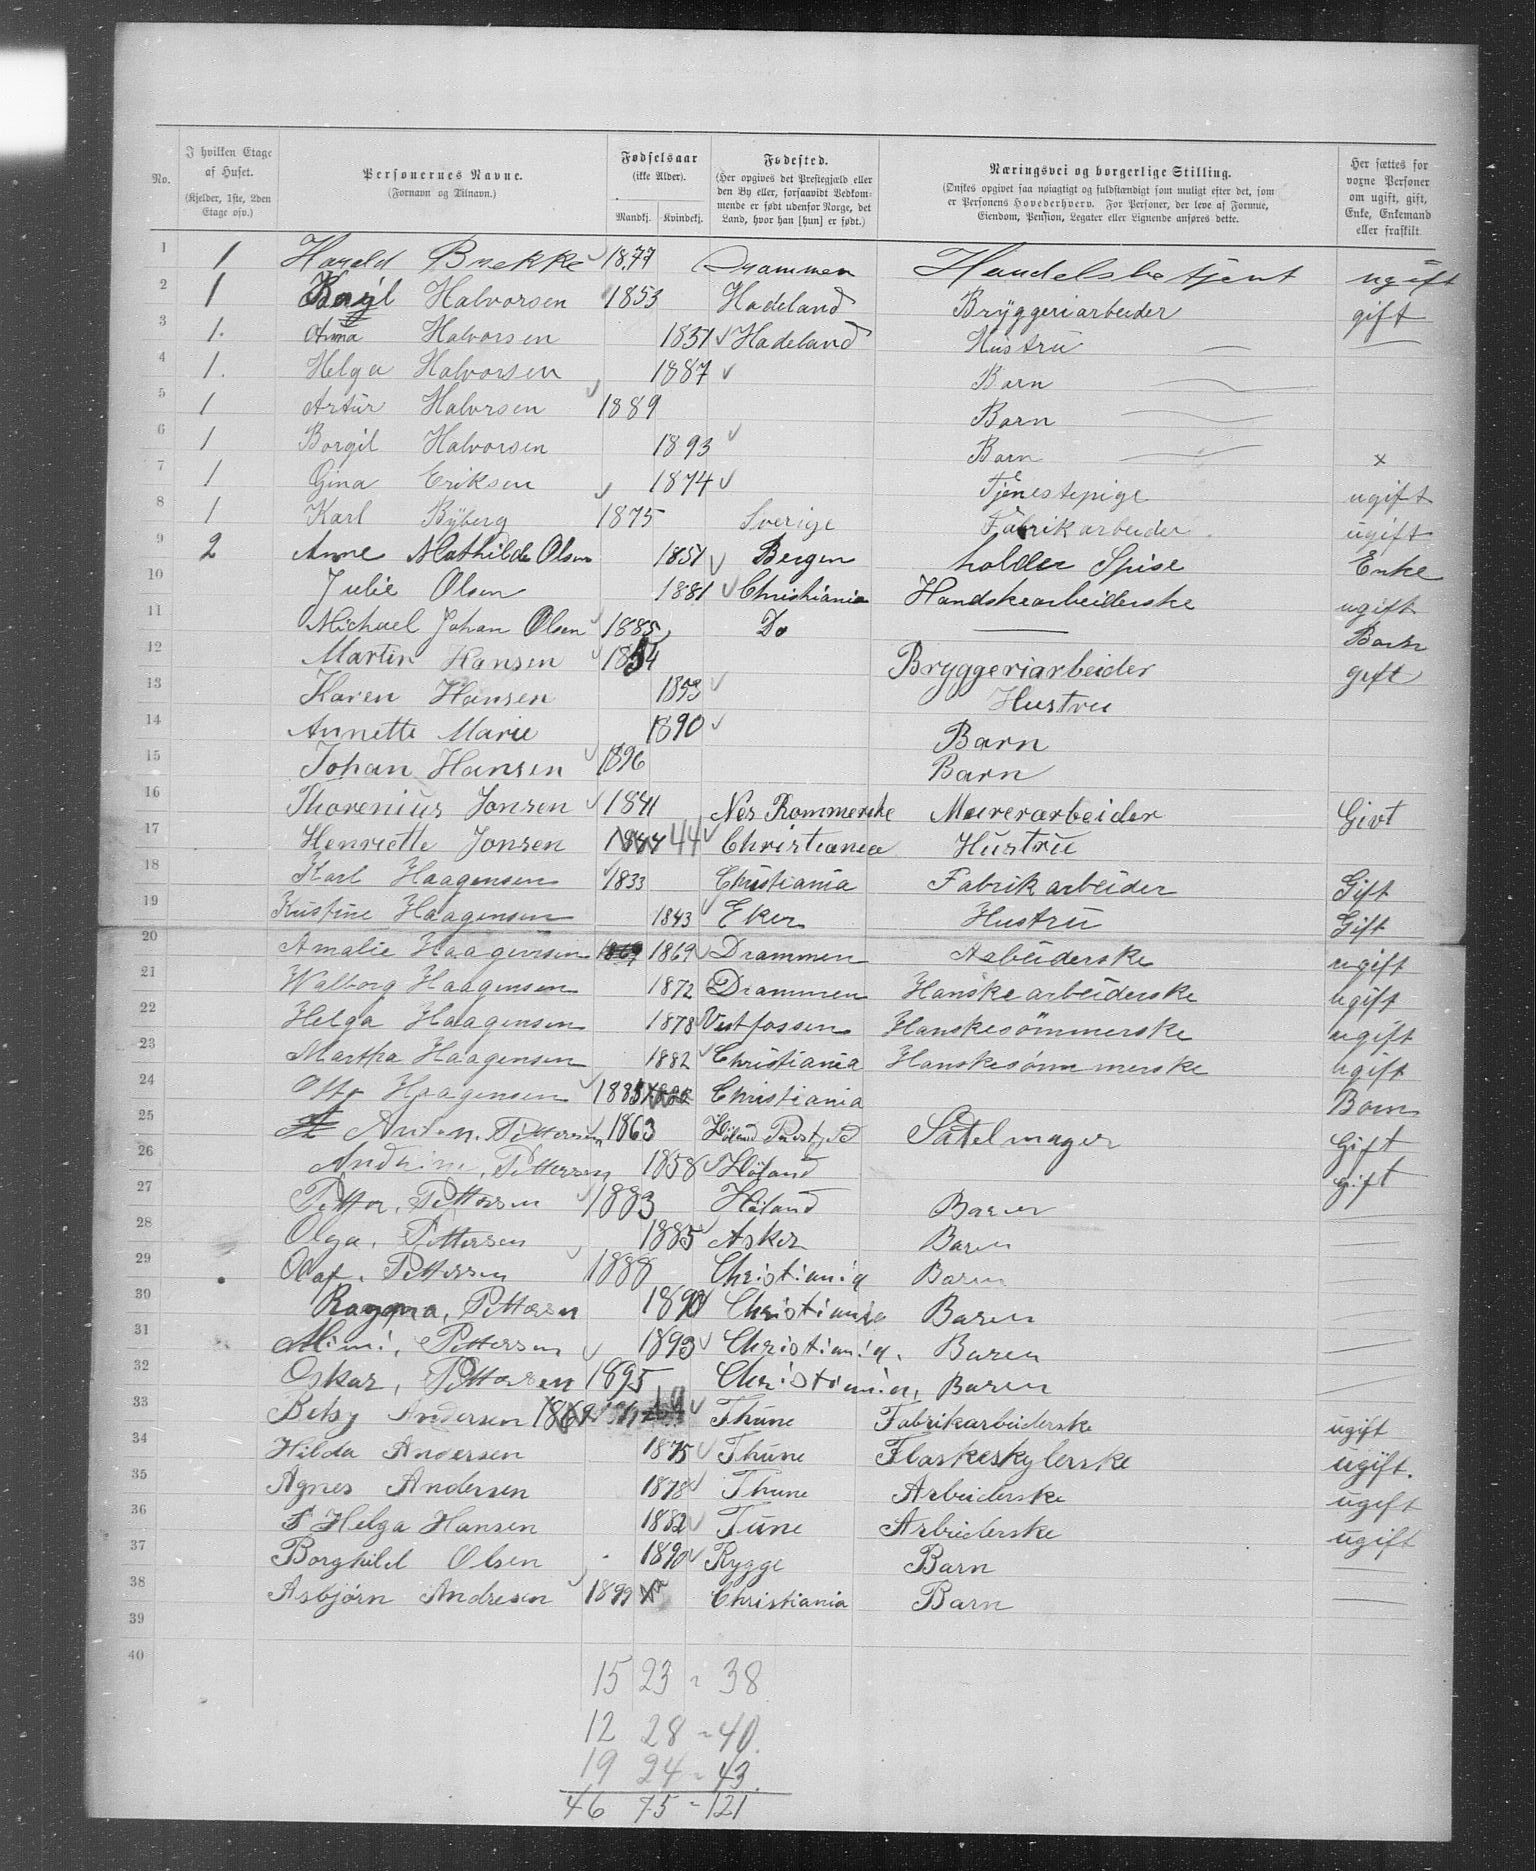 No.
I hvilken Etage af Huset.
(Kjelder, 1ste, 2den Etage osv.)
Personernes Navne.
(Fornavn og Tilnavn.)
Fødselsaar
(ikke Alder).
Mandkj. Kvindekj.
Fødested.
(Her opgives det Prestegjæld eller den By eller, forsaavidt Vedkommende er født udenfor Norge, det Land, hvor han [hun] er født.)
Næringsvei og borgerlige Stilling.
(Ønskes opgivet saa nøiagtigt og fuldstændigt som muligt efter det, som er Personens Hovederhverv. For Personer, der leve af Formue, Eiendom, Pension, Legater eller Lignende anføres dette.
Her sættes for voxne Personer om ugift, gift, Enke, Enkemand eller fraskilt.
1 1 Harald Brekke 1877 Drammen Handelsbetjent ugift
2 1 Halvorsen 1853 Hadeland Bryggeriarbeider gift
3 1. Anna Halvorsen 1851 Hadeland Hustru
4 1. Helga Halvorsen 1887 Barn
5 1 Artur Halvrsen 1889 Barn
6 1 Borgil Halvorsen 1893 Barn x
7 1 Gina Eriksen 1874 Tjenestepige ugift
8 1 Karl Byberg 1875 Sverige Fabrikarbeider ugift
9 2 Anne Mathilde Olsen 1851 Bergen holder Spise Enke
10 Julie Olsen 1881 Christiania Handskearbeiderske ugift
11 Michael Johan Olsen 1885 Do Barn
12 Martin Hansen 1854 Bryggeriarbeider gift
13 Karen Hansen 1853 Hustru
14 Annette Marie 1890 Barn
15 Johan Hansen 1896 Barn
16 Thorenius Jonsen 1841 Nes Rommerike Murerarbeider Givt
17 Henriette Jonsen 44 Christiania Hustru
18 Karl Haagensen 1833 Christiania Fabrikarbeider Gift
19 Kristine Haagensen 1843 Eker Hustru Gift
20 Amalie Haagensen 1869 1869 Drammen Arbeiderske ugift
21 Walborg Haagensen 1872 Drammen Hanskearbeiderske ugift
22 Helga Haagensen 1878 Vestfossen Hanskesömmerske ugift
23 Martha Haagensen 1882 Christiania Hanskesømmerske ugift
24 Otto Haagensen 1885 Christiania Barn
25 Anton. Pettersen 1863 Höland Salelmager Gift
26 Andrine, Pettersen 1858 Höland gift
27 Petter, Pettersen 1883 Höland Baren
28 Olga, Pettersen 1885 Asker Baren
29 Olaf, Pettersen 1888 Christiania Baren
30 Ragna, Pettersen 1890 Christiania Baren
31 Mimi, Pettersen 1893 Christiania. Baren
32 Oskar, Pettersen 1895 Christiania, Baren
33 Betsy Andersen 1869 Thune Fabrikarbeiderske ugift
34 Hilda Andersen 1875 Thune Flaskeskylerske ugift.
35 Agnes Andersen 1878 Thune Arbeiderske ugift
36 Helga Hansen 1882 Tune Arbeiderske ugift
37 Borghild Olsen 1890 Rygge Barn
38 Asbjørn Andresen 1899 Christiania Barn
39
40
15 23 = 38
12 28 = 40.
19 24 = 43.
46 75 = 121